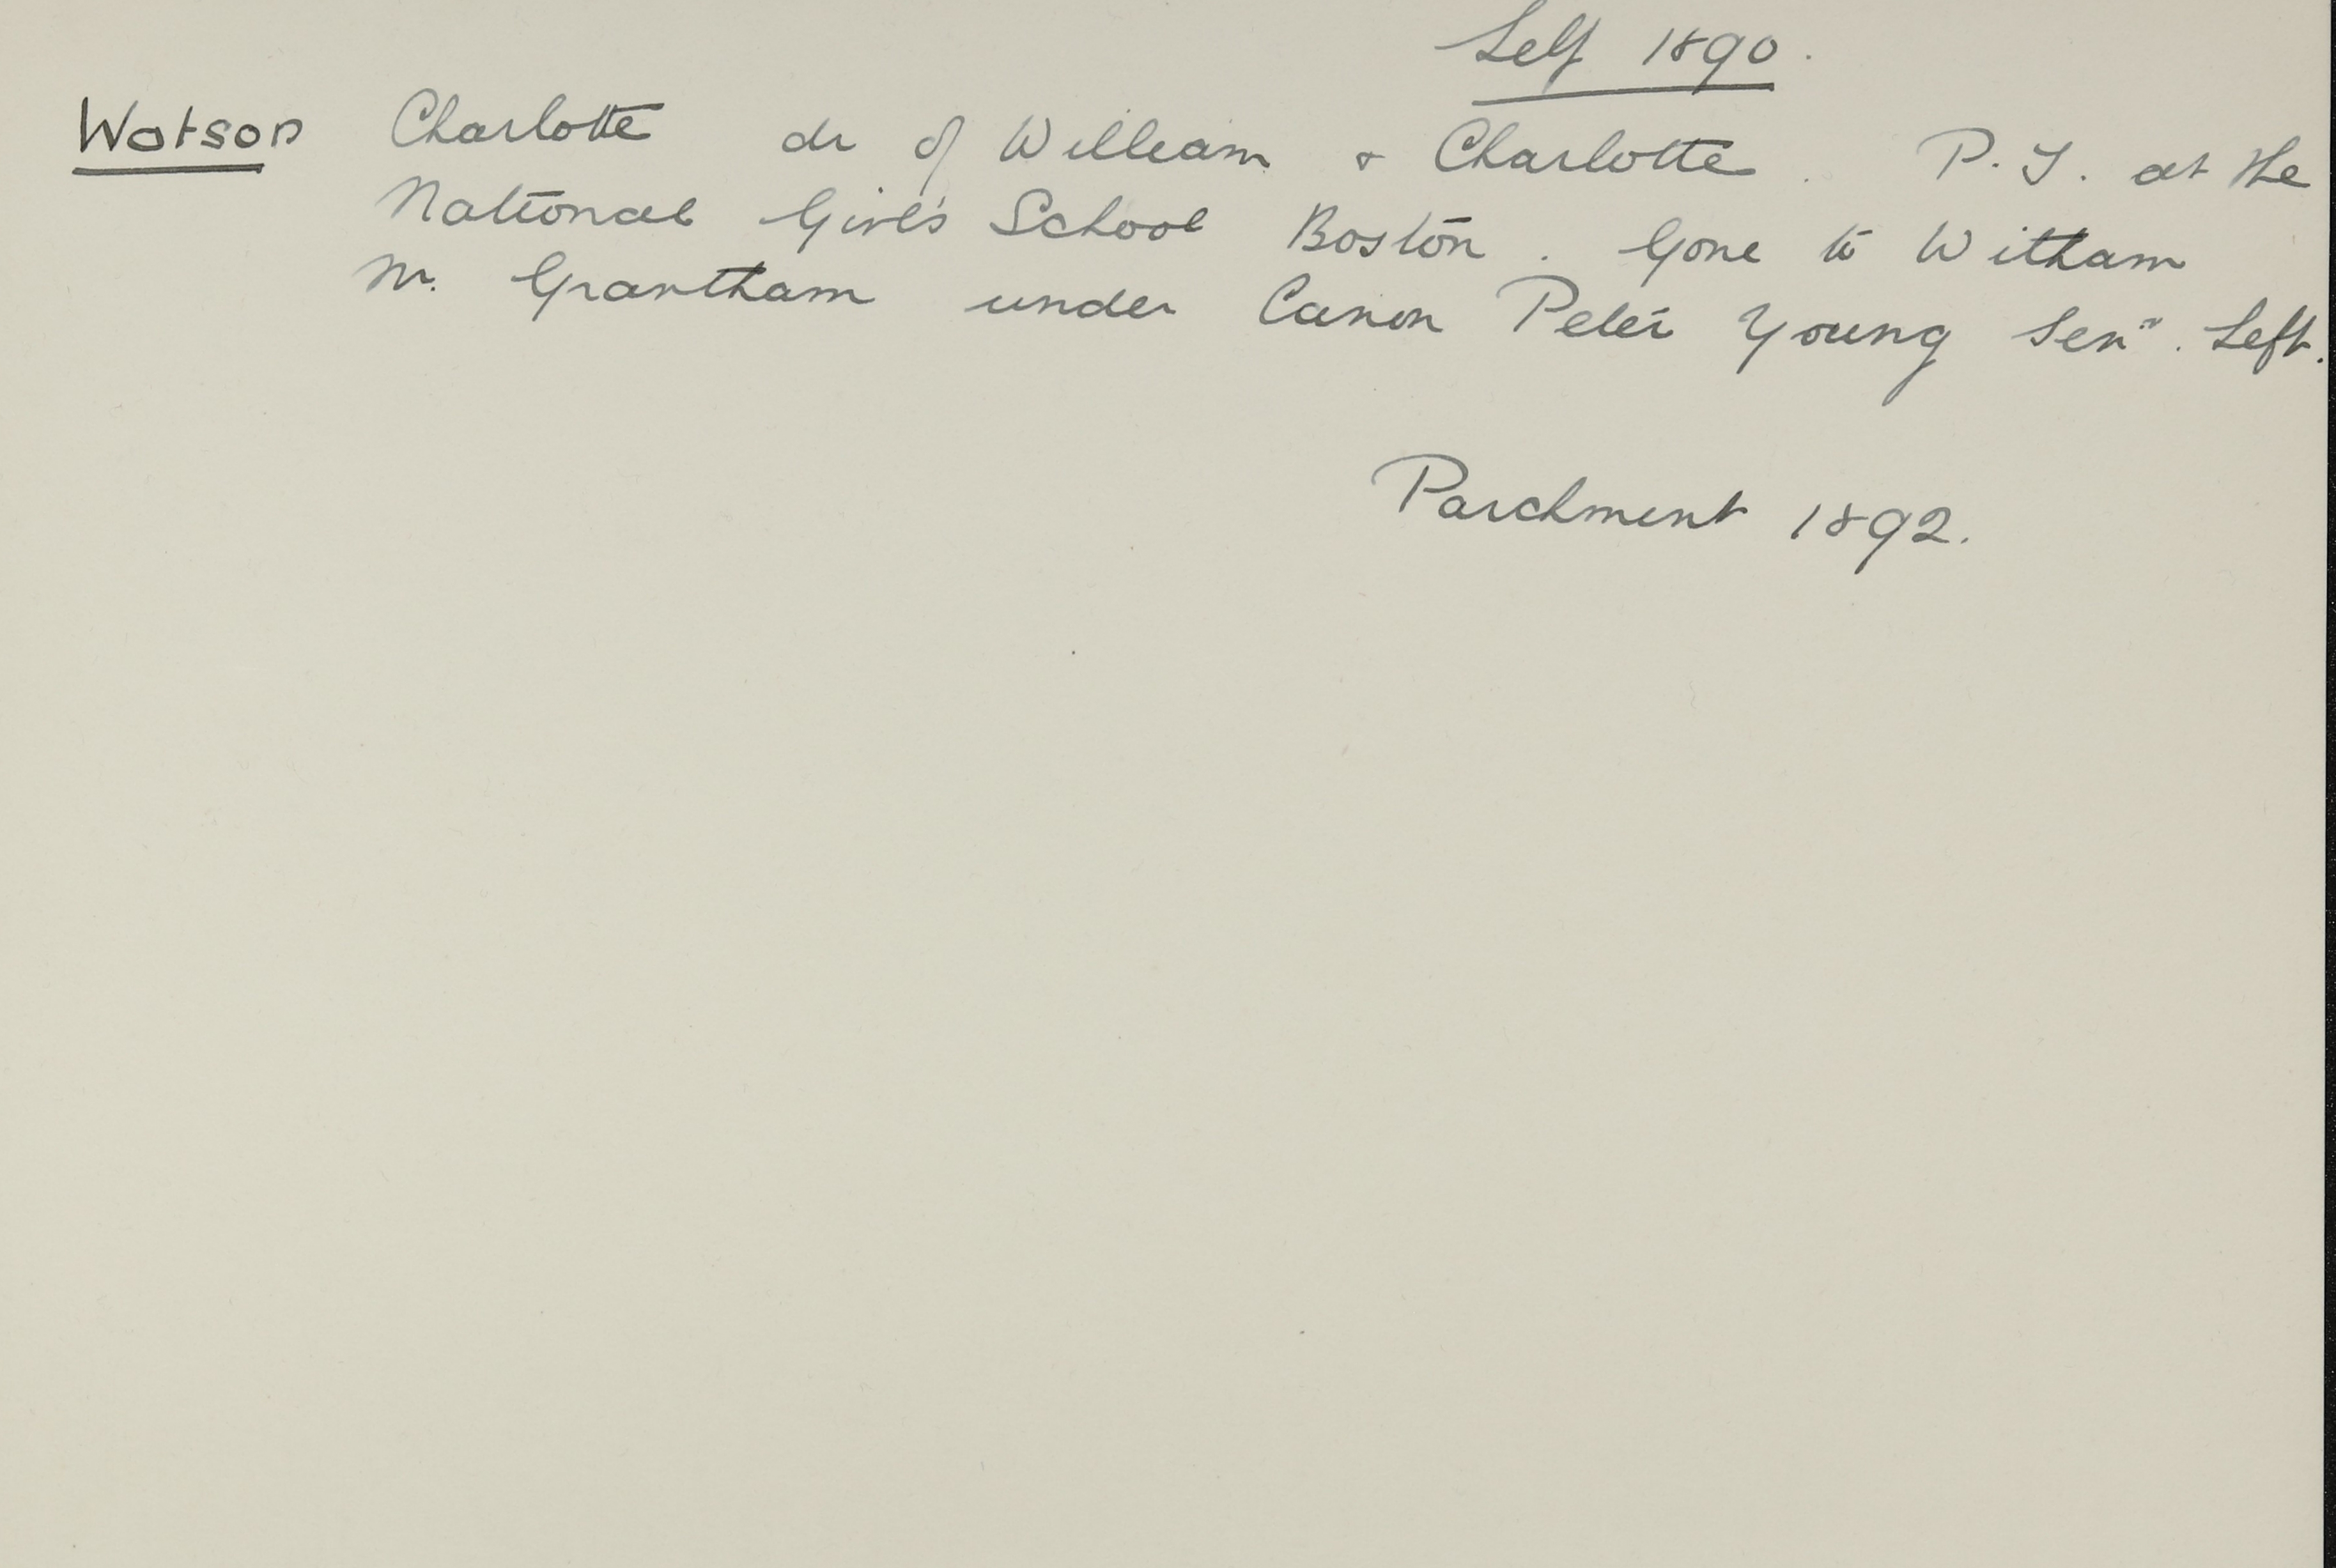 Self 1890.
Watson Charlotte dr of William & Charlotte. P.T. at the
National Girls School Boston. Gone to Witham
Nr. Grantham under Canon Peter Young Senr. Left.
Parchment 1892.